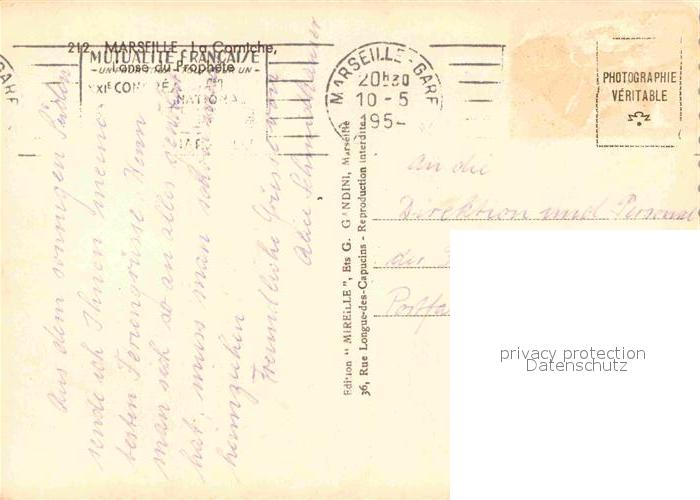 212. MARSEILLE - La Corniche,
l'anse du Prophète
MUTUALITÉ FRANÇAISE
XIE CONGRÈS NATIONAL
MARSEILLE - GARE
20H30
10 - 5
195-
GARE
PHOTOGRAPHIE
VÉRITABLE
Aus dem sonnigen Süden
sende ich Ihnen meine
besten Feriengrüsse. Wenn
man sich so an alles gewöhnt
hat, muss man schon
heimziehen
Freundliche Grüsse von
Edition "MIREILLE", Ets G. GANDINI, Marseille
36, Rue Longue-des-Capucins - Reproduction interdite
An die
Direktion und Personal
der
privacy protection
Datenschutz